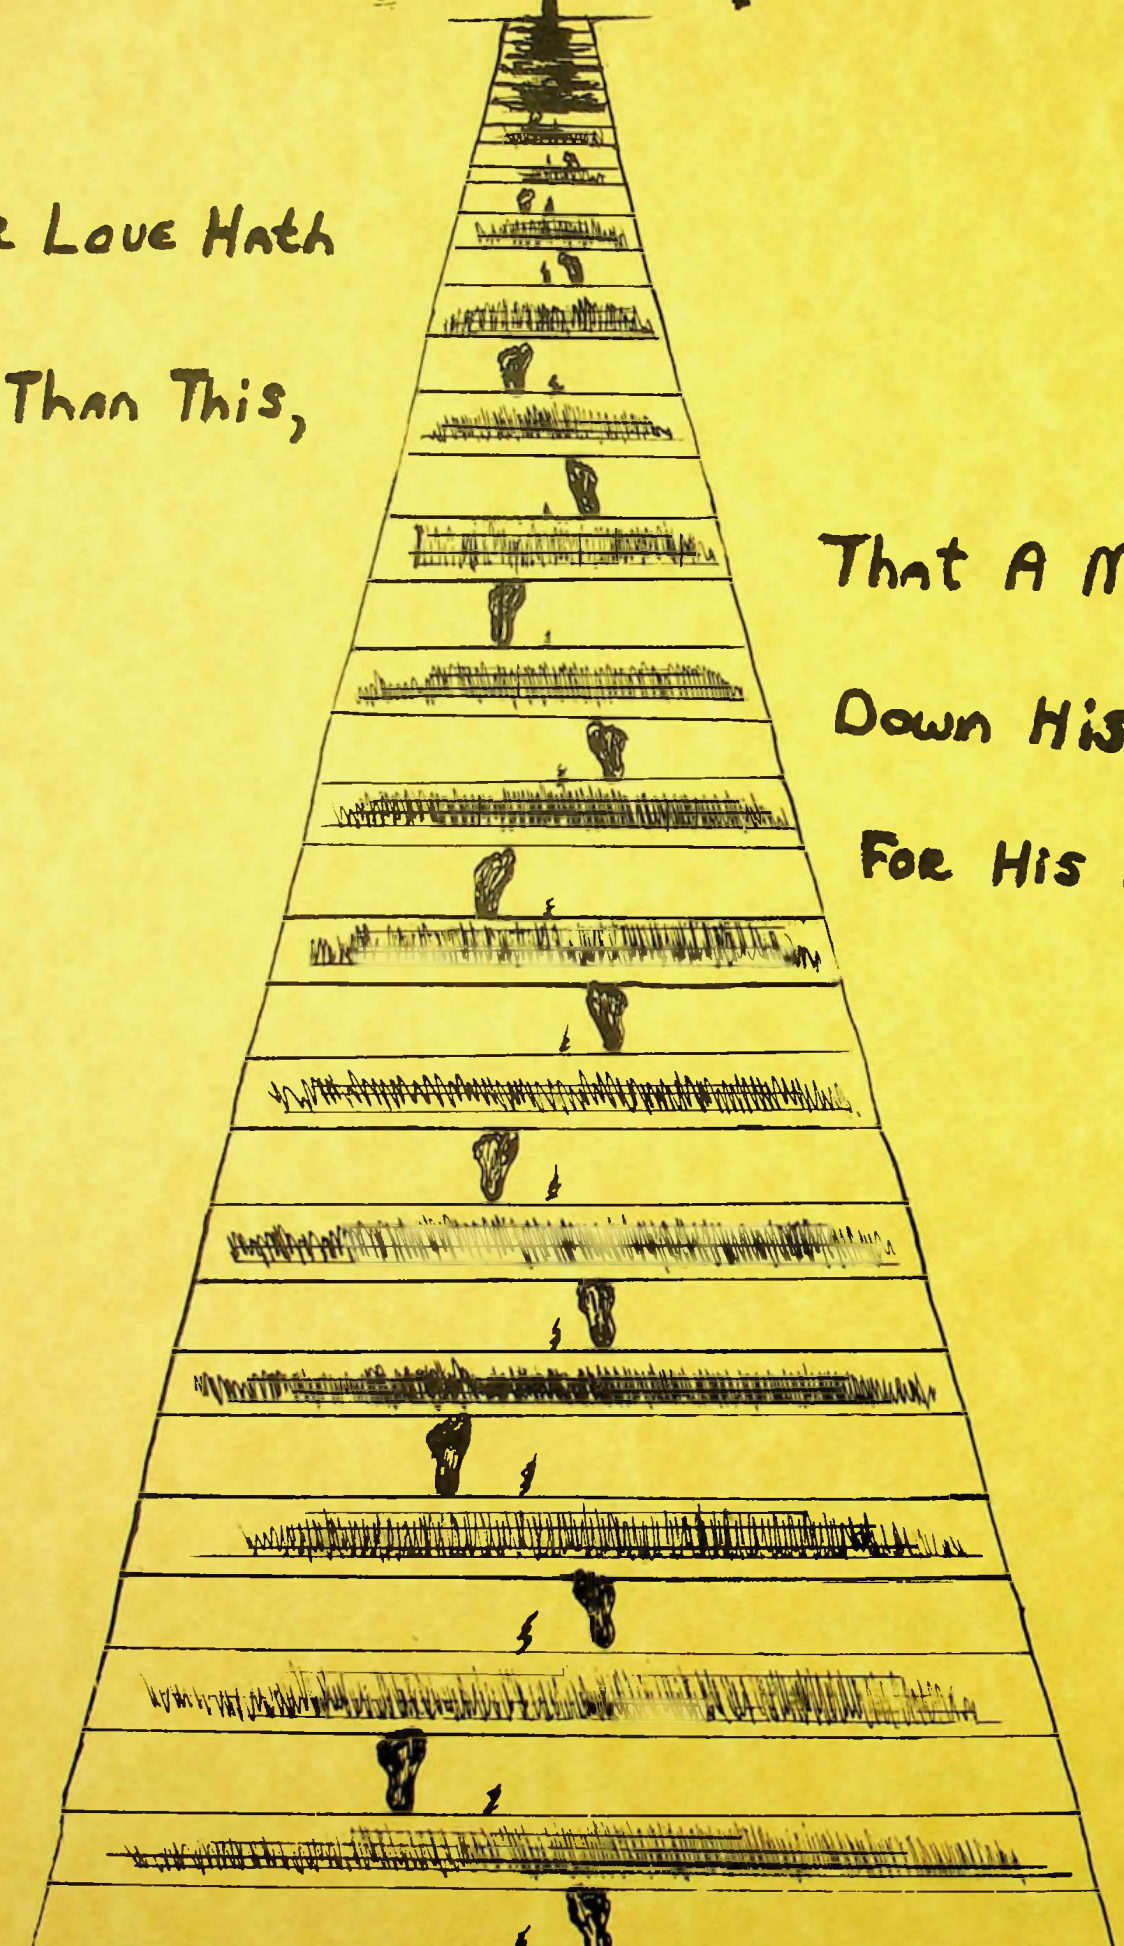 Love Hath
Than This,
That A
Down His
For His